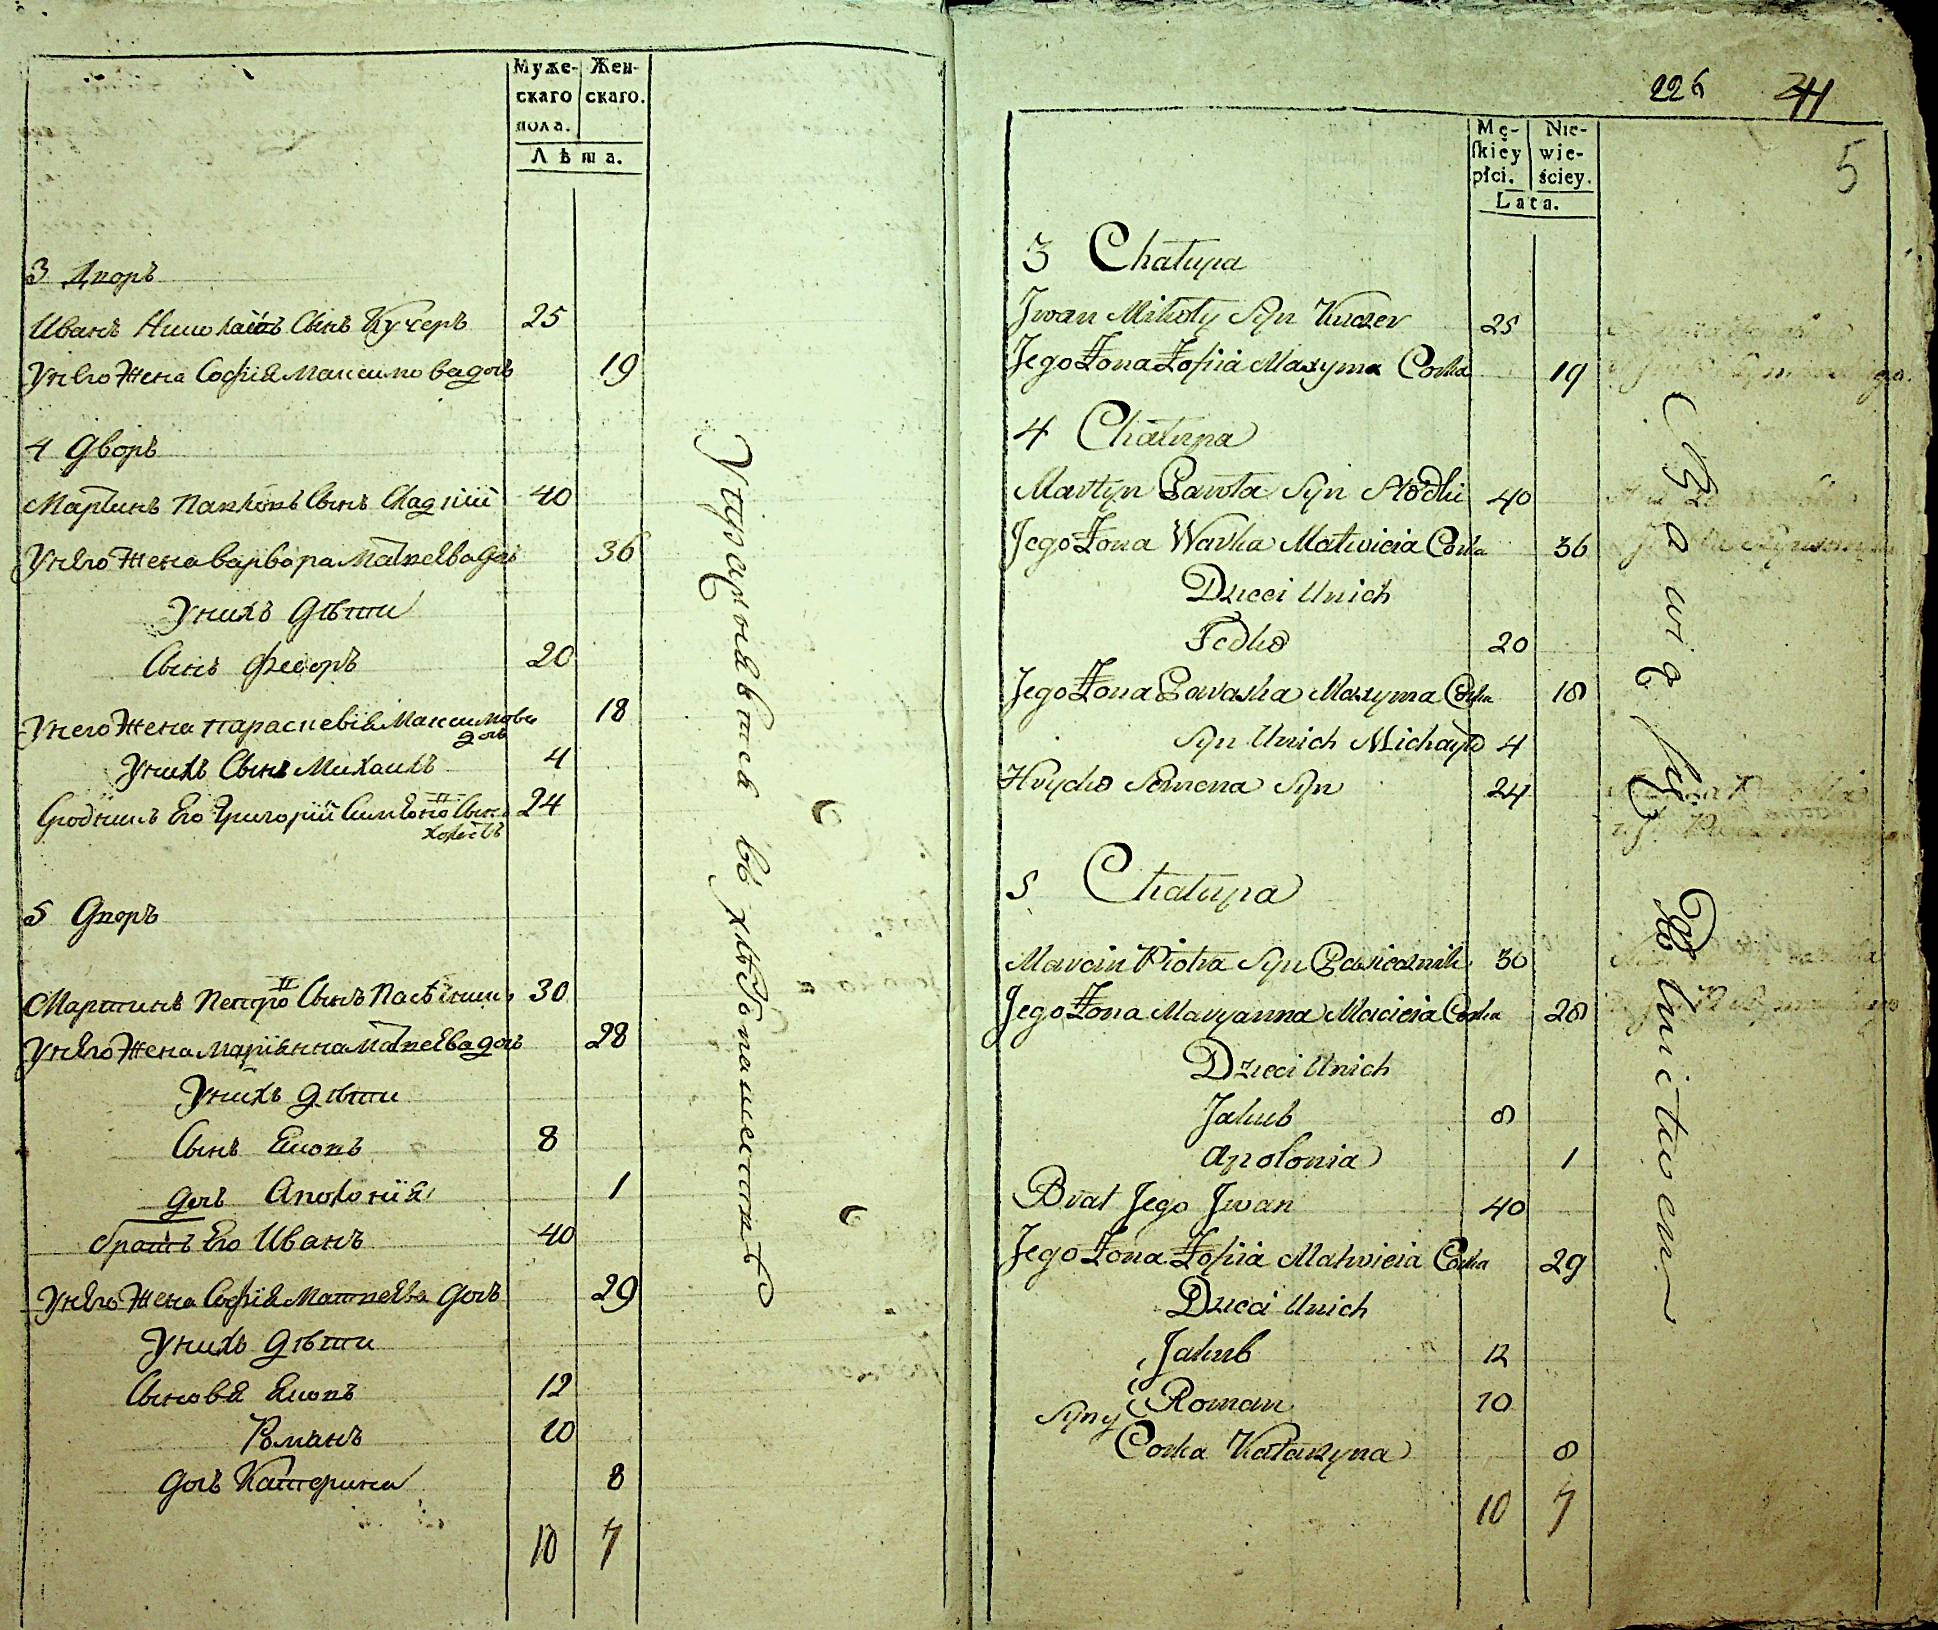 Муже-
скаго
пола.
Жен-
скаго.
Лѣта.
3 Дворъ
Иванъ Николаевъ Сынъ Кучеръ 25
Унего Жена Софія Максимова дочь 19
4 Дворъ
Мартинъ Павловъ Сынъ 40
Унего Жена варвара Матвеева дочь 36
Унихъ Дѣти
Сынъ Федоръ 20
Унего Жена параскевія Максимова
дочь 18
Унихъ Сынъ Михаилъ 4
Его Григорій Сынъ 24
5 Дворъ
Мартинъ Петро Сынъ 30
Унего Жена маріянна матвеева дочь 28
Унихъ дѣти
Сынъ Яковъ 8
дочь Аполонія 1
братъ Его Иванъ 40
Унего Жена Софія Матвеева Дочь 29
Унихъ дѣти
Сыновя Яковъ 12
Романъ 10
дочь Катерина 8
10 7
въ хлѣбопашествѣ
226 241
5
Mę-
ſkiéy
płci.
Nie-
wie-
ściey.
Lata.
3 Chałupa
Jwan Mikoły Syn Kuczer 25
Jego Żona Zofiia Maxyma Corka 19
4 Chałupa
Martyn Pawła Syn Słodki 40
Jego Żona Warka Matwieia Corka 36
Dzieci Unich
Fedko 20
Jego Żona Paraska Maxyma Corka 18
Syn Unich Michayło 4
Hryćko Semena Syn 24
5 Chałupa
Marcin Piotra Syn Pasiecznik 30
Jego Żona Maryanna Macieia Corka 28
Dzieci Unich
Jakub 8
Apolonia 1
Brat Jego Jwan 40
Jego Żona Zofiia Matwieia Corka 29
Dzieci Unich
Jakub 12
Syny Roman 10
Corka Katarzyna 8
10 7
Bawią się Rolnictwem